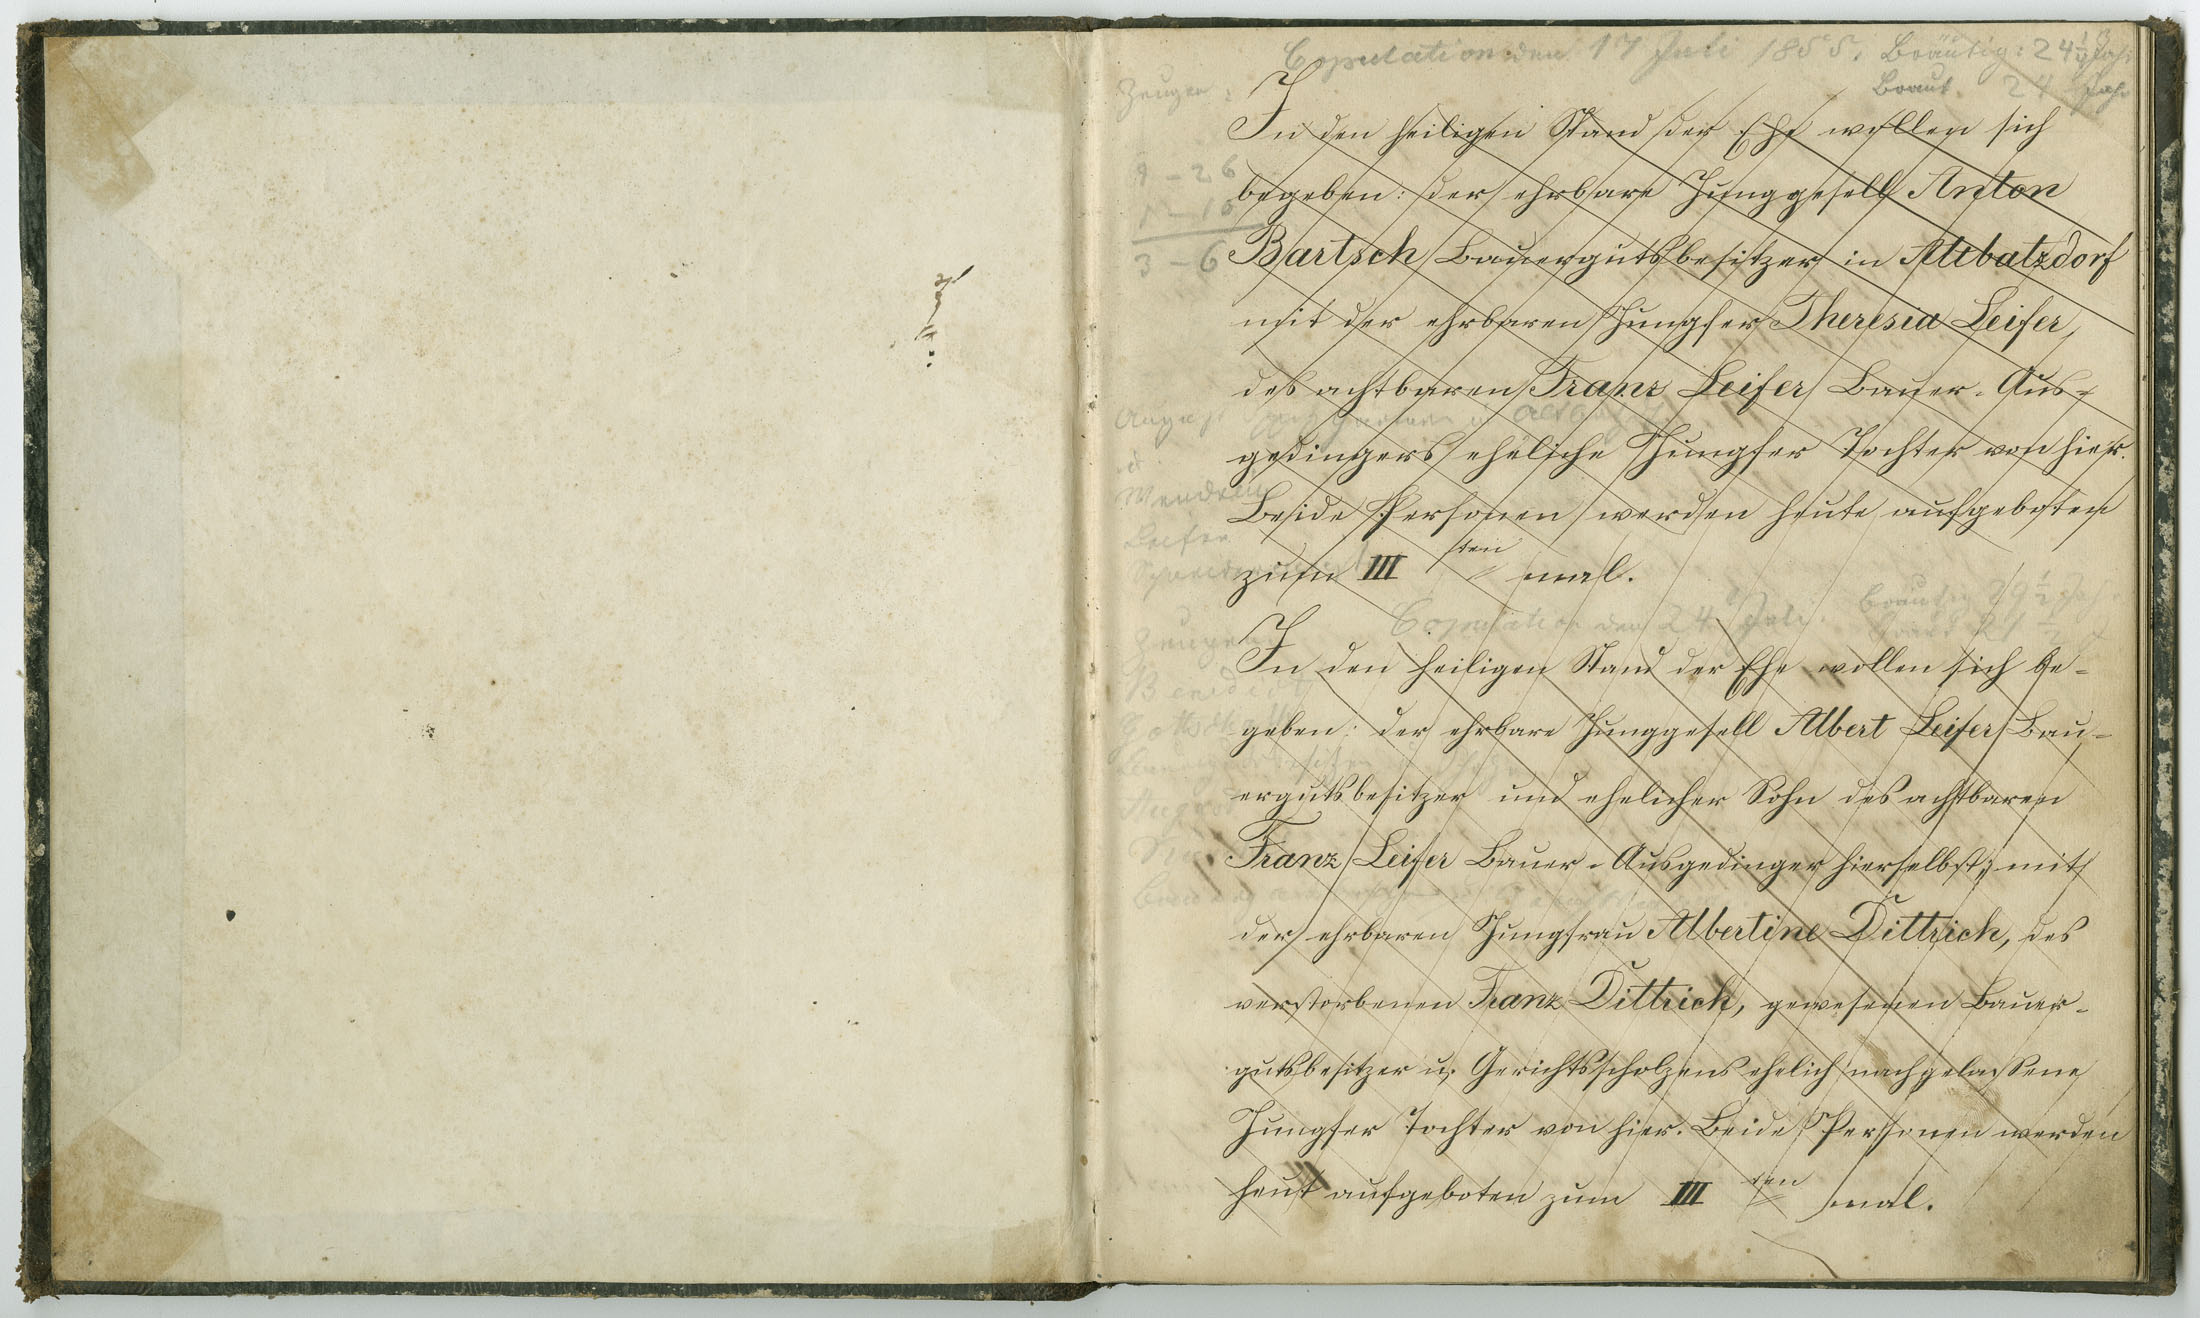 Copulation den 17 Juli 1855. Bräutig: 24 Jahr
Zeugen: Braut 24 Jahr
In den heiligen Stand der Ehe wollen sich
begeben: der ehrbare Junggesell Anton
Bartsch Bauergutsbesitzer in Altbatzdorf
3 – 6
mit der ehrbaren Jungfer Theresia Leifer,
des achtbaren Franz Leifer Bauer-Aus-
gedingers eheliche Jungfer Tochter von hier.
Beide Personen werden heute aufgeboten
zum III sten mal.
August
Leifer
Copulation den 24 Juli.
Zeugen
In den heiligen Stand der Ehe wollen sich be-
geben: der ehrbare Junggesell Albert Leifer Bau-
ergutsbesitzer und ehelicher Sohn des achtbaren
Franz Leifer Bauer-Ausgedinger hierselbst, mit
der ehrbaren Jungfrau Albertine Dittrich, des
verstorbenen Franz Dittrich, gewesenen Bauer-
gutsbesitzer u. Gerichtsscholzens ehelich nachgelassene
Jungfer Tochter von hier. Beide Personen werden
heut aufgeboten zum III ten mal.
Benedict